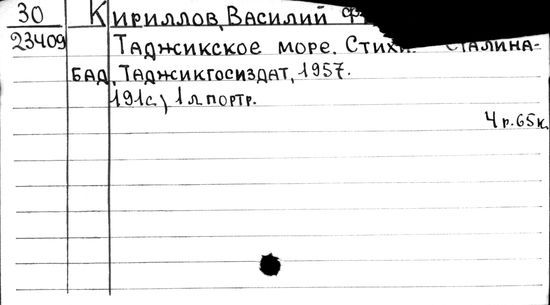 30 Кириллов, Василий
23409 Таджикское море. Стихи. Сталина-
бад, Таджикгосиздат, 1957.
191с., 1 л. портр.
4 р. 65 к.